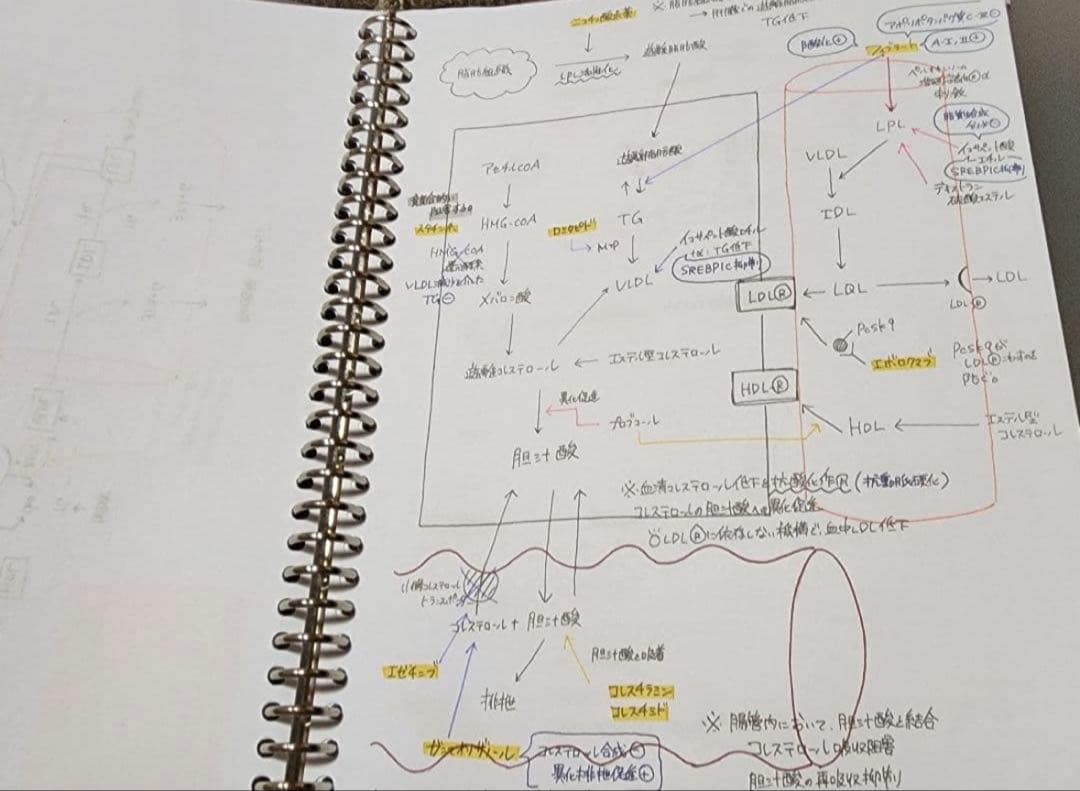 ニコチン酸系薬
TG低下
脂肪組織
LPL活性化
遊離脂肪酸
胆酸化⊕
アポリポタンパク質C-Ⅲ⊖
A-Ⅰ,Ⅱ⊕
フィブラート
LPL
脂質合成
イコサペント酸
エチル
SREBP1C抑制
デキストラン
硫酸エステル
アセチルCoA
遊離脂肪酸
HMG-CoA
スタチン系
HMG-CoA
還元酵素
VLDL
TG⊖
メバロン酸
ロミタピド
MTP
TG
VLDL
イコサペント酸エチル
TG低下
SREBP1C抑制
VLDL
IDL
LDL
LDLⓇ
LDLⓇ
LDL
Pcsk9
エボロクマブ
Pcsk9が
LDLⓇ
防ぐ。
遊離コレステロール
エステル型コレステロール
異化促進
プロブコール
胆汁酸
HDLⓇ
HDL
エステル型
コレステロール
※血清コレステロール低下&抗酸化作用(抗動脈硬化)
コレステロールの胆汁酸への異化促進
LDLⓇに依存しない機構で、血中LDL低下
小腸コレステロール
トランスポーター
コレステロール+胆汁酸
エゼチミブ
排泄
胆汁酸と吸着
コレスチラミン
コレスチミド
ガンマオリザノール
コレステロール合成⊖
異化排泄促進⊕
※ 腸管内において、胆汁酸と結合
コレステロール吸収阻害
胆汁酸の再吸収抑制